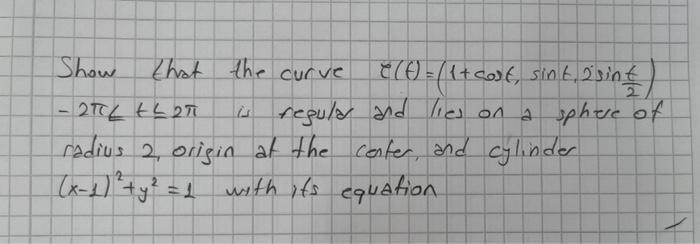 Show that the curve τ(t) = (1 + cost, sin t, 2 sin t/2)
- 2π ≤ t ≤ 2π is regular and lies on a sphere of
radius 2, origin at the center, and cylinder
(x-1)² + y² = 1 with its equation